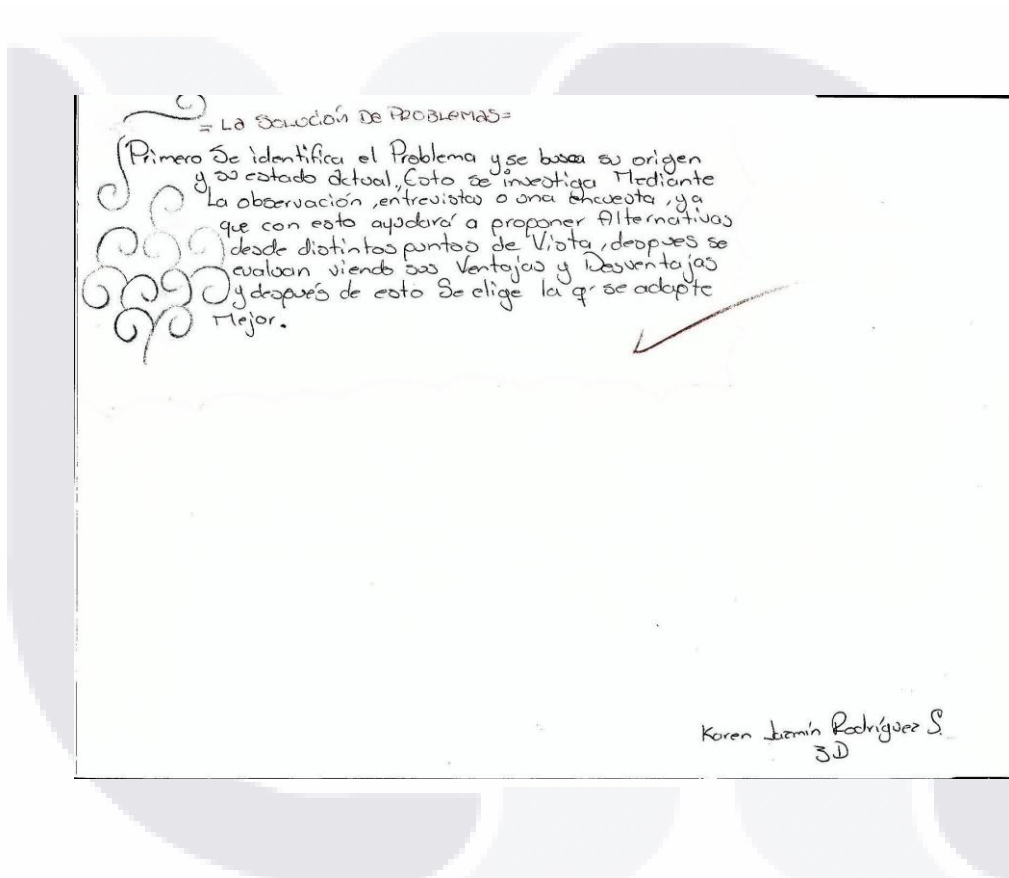 = La Solución De PROBLEMAS=
Primero Se identifica el Problema y se busca su origen
y su estado actual, Esto se investiga Mediante
La observación, entrevistas o una encuesta, ya
que con esto ayudará a proponer Alternativas
desde distintos puntos de Vista, despues se
evaluan viendo sus Ventajas y Desventajas
y después de esto Se elige la q' se adapte
Mejor.
Karen Jazmín Rodríguez S.
3D